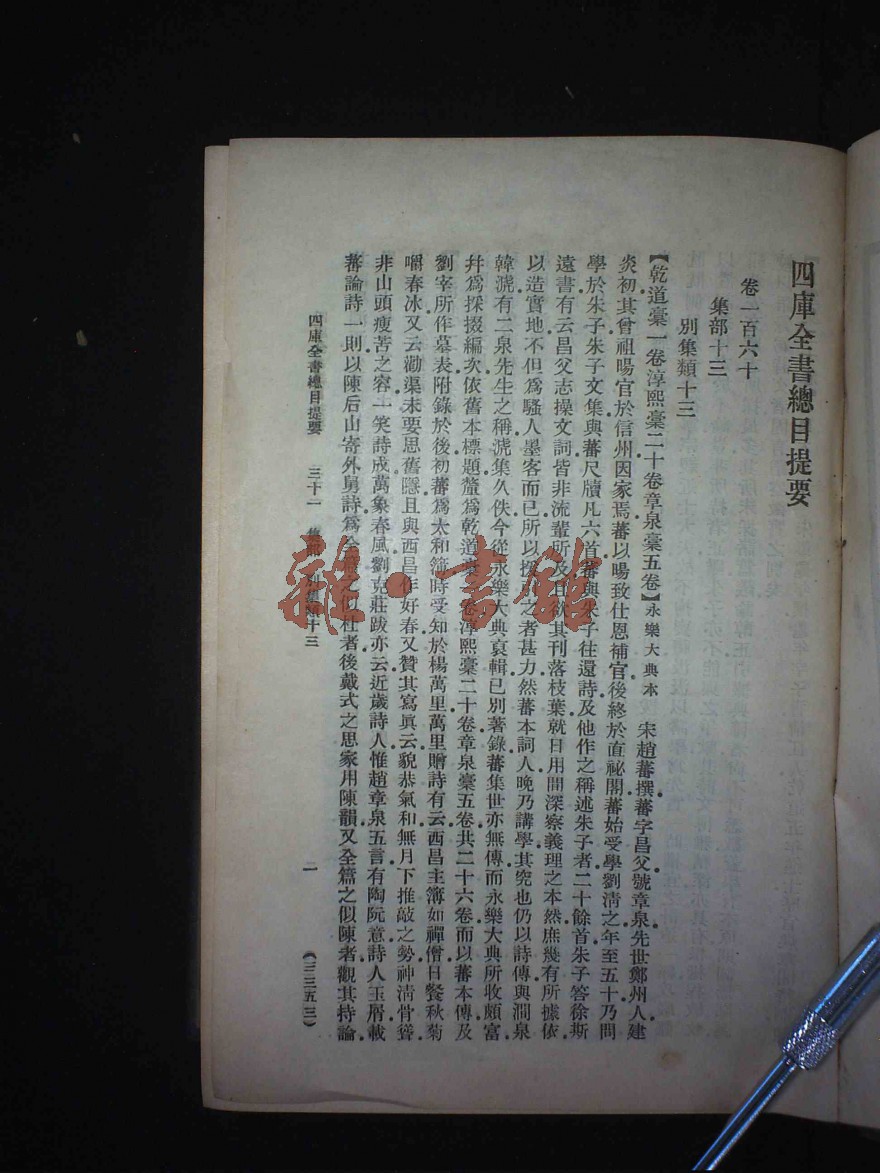 四庫全書總目提要
卷一百六十
集部十三
別集類十三
【乾道稾一卷淳熙稾二十卷章泉稾五卷】永樂大典本 宋趙蕃撰蕃字昌父號章泉先世鄭州人建
炎初其曾祖暘官於信州因家焉蕃以暘致仕恩補官後終於直祕閣蕃始受學劉淸之年至五十乃問
學於朱子朱子文集與蕃尺牘凡六首蕃與朱子往還詩及他作之稱述朱子者二十餘首朱子答徐斯
遠書有云昌父志操文詞皆非流輩所及且欲其刊落枝葉就日用間深察義理之本然庶幾有所據依
以造實地不但爲騷人墨客而已所以 之者甚力然蕃本詞人晚乃講學其究也仍以詩傳與澗泉
韓淲有二泉先生之稱淲集久佚今從永樂大典裒輯已別著錄蕃集世亦無傳而永樂大典所收頗富
幷爲採掇編次依舊本標題釐爲乾道稾 卷淳熙稾二十卷章泉稾五卷共二十六卷而以蕃本傳及
劉宰所作墓表附錄於後初蕃爲太和簿時受知於楊萬里萬里贈詩有云西昌主簿如禪僧日餐秋菊
嚼春冰又云勸渠未要思舊隱且與西昌作好春又贊其寫眞云貌恭氣和無月下推敲之勢神淸骨聳
非山頭瘦苦之容一笑詩成萬象春風劉克莊跋亦云近歲詩人惟趙章泉五言有陶阮意詩人玉屑載
蕃論詩一則以陳后山寄外舅詩爲全篇之似杜者後戴式之思家用陳韻又全篇之似陳者觀其持論
四庫全書總目提要 三十一 集部 別集類十三 一 (三三五三)
雜·書館